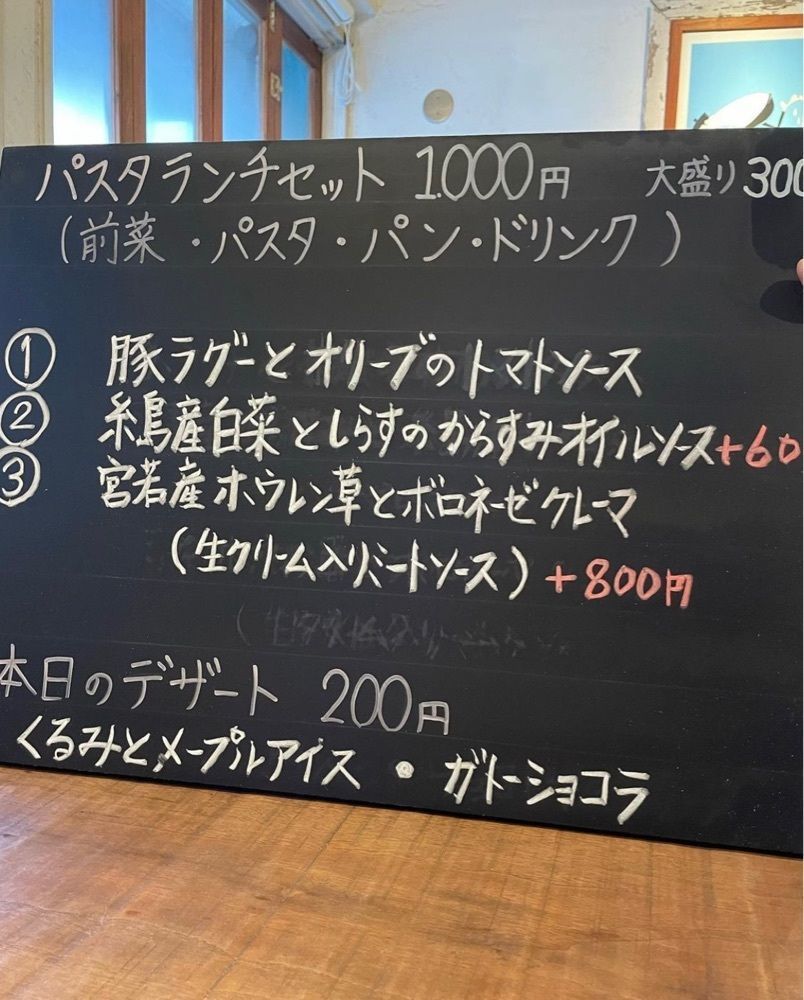 パスタランチセット 1.000円 大盛り 300
(前菜・パスタ・パン・ドリンク)
① 豚ラグーとオリーブのトマトソース
② 糸島産白菜としらすのからすみオイルソース+60
③ 宮若産ホウレン草とボロネーゼクレーマ
(生クリーム入りミートソース)+800円
本日のデザート 200円
くるみとメープルアイス ・ ガトーショコラ